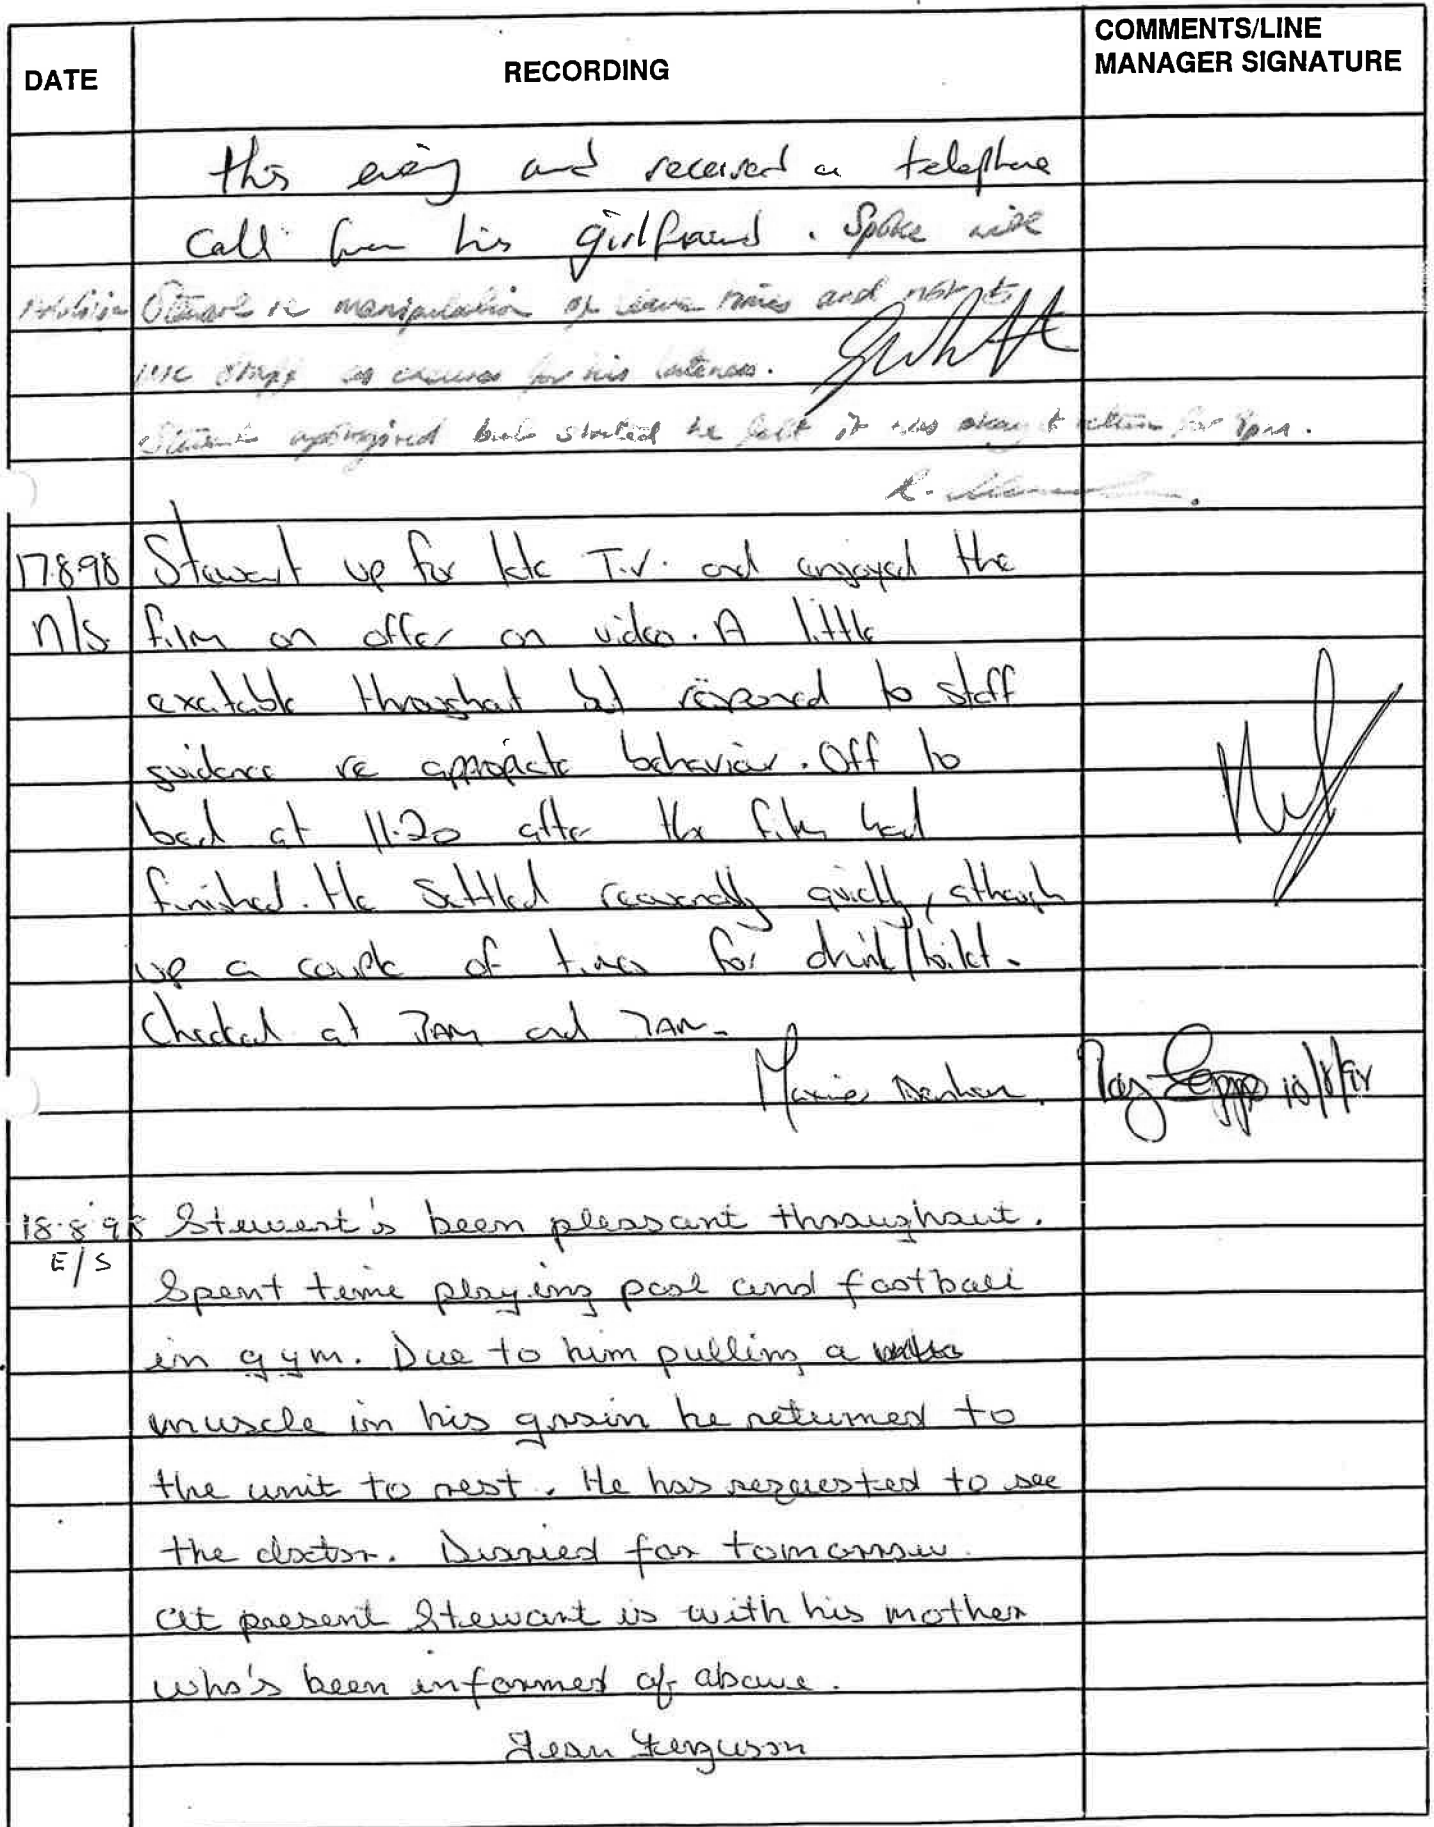 DATE RECORDING COMMENTS/LINE MANAGER SIGNATURE
this evening and received a telephone
call from his girlfriend. Spoke with
re manipulation of leave times and not to
use staff as excuses for his lateness.
apologised but stated he felt it was okay to return for 9pm.
R.
17.8.98 Stewart up for late T.V. and enjoyed the
N/S. film on offer on video. A little
excitable throughout but respond to staff
guidance re appropriate behaviour. Off to
bed at 11.20 after the film had
finished. He settled reasonably quickly, although
up a couple of times for drink/toilet.
Checked at and 7AM.
18.8.98 Stewart's been pleasant throughout.
E/S Spent time playing pool and football
in gym. Due to him pulling a
muscle in his groin he returned to
the unit to rest. He has requested to see
the doctor. Diaried for tomorrow.
At present Stewart is with his mother
who's been informed of above.
Jean Ferguson